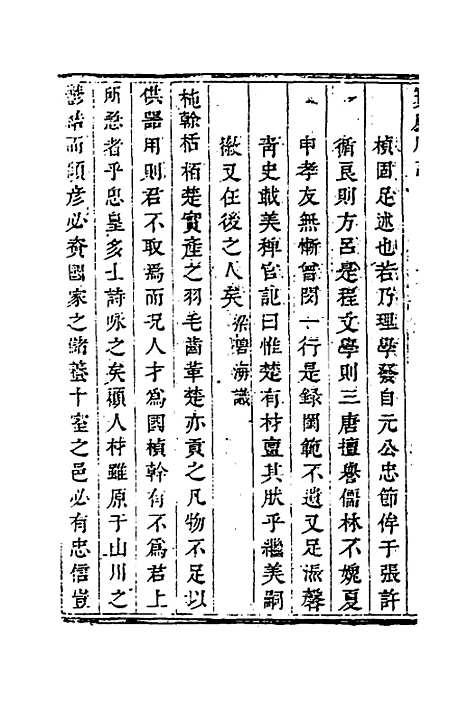 楨固足述也若乃理學發自元公忠節侔于張許
循良則方呂是程文學則三唐擅譽儒林不媿夏
申孝友無慚曾閔一行是録閨範不遺又足流馨
青史戢美稗官記曰惟楚有材亶其肰乎繼美嗣
徽又任後之人矣梁碧海識
杶榦栝栢楚實產之羽毛齒革楚亦貢之凡物不足以
供器用則君不取焉而况人才為國楨幹有不為君上
所急者乎思皇多士詩咏之矣顧人材雖原于山川之
而碩彦必賚國家之儲養十室之邑必有忠信豈